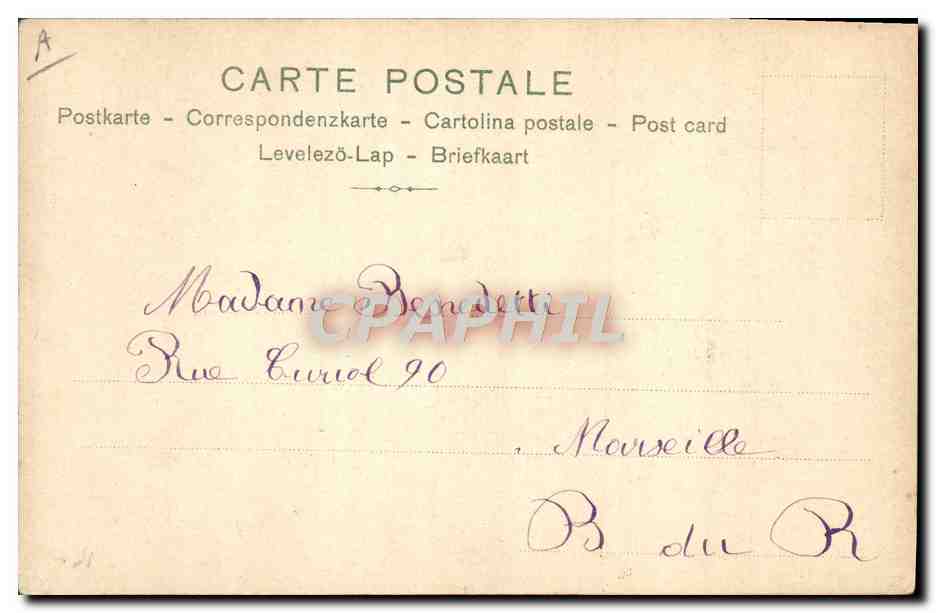 A
CARTE POSTALE
Postkarte - Correspondenzkarte - Cartolina postale - Post card
Levelezö-Lap - Briefkaart
Madame Benedetti
CPAPHIL
Rue Curiol 90
Marseille
B du R